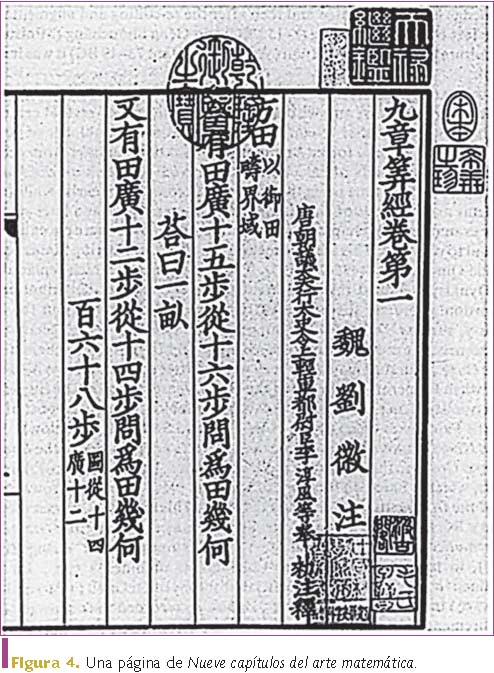 天祿繼鑑
宋本
希世之珍
乾隆御覽之寶
九章筭經卷第一
魏劉徽注
唐朝議大夫行太史令上輕車都尉臣李淳風等奉 勅注釋
方田以御田疇界域
今有田廣十五步從十六步問爲田幾何
荅曰一畝
又有田廣十二步從十四步問爲田幾何
百六十八步圖從十四廣十二
Figura 4. Una página de Nueve capítulos del arte matemática.